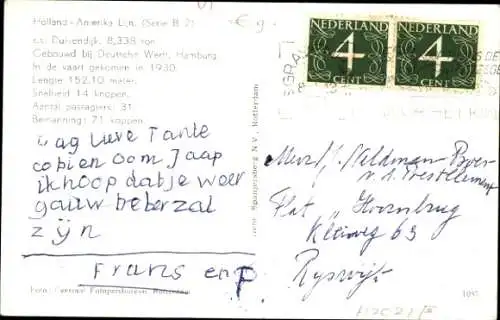 Holland-Amerika Lijn. (Serie B 2)
s.s. Duivendijk, 8,338 ton
Gebouwd bij Deutsche Werft, Hamburg.
In de vaart gekomen in 1930.
Lengte 152.10 meter.
Snelheid 14 knopen.
Aantal passagiers: 31.
Bemanning: 71 koppen.
Dag lieve Tante
copien oom Jaap
ik hoop dat je weer
gauw beter zal
zijn
Frans en P
Foto: Centraal Fotopersbureau, Rotterdam
Spanjersberg N.V., Rotterdam
NEDERLAND
4
CENT
NEDERLAND
4
CENT
Mevr. J. Veldman-Boer
Flat "Hoornbrug
Kleiweg 63
Ryswijk